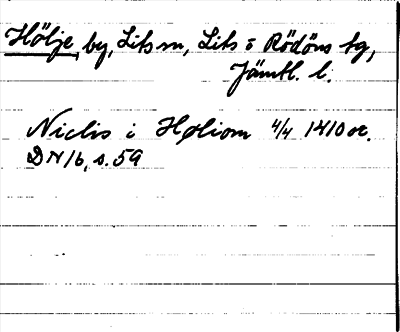 Hölje, by, Lits sn, Lits o Rödöns tg,
Jämtl. l.
Niclis i Høliom 4/4 1410 or.
DN 16, s. 59